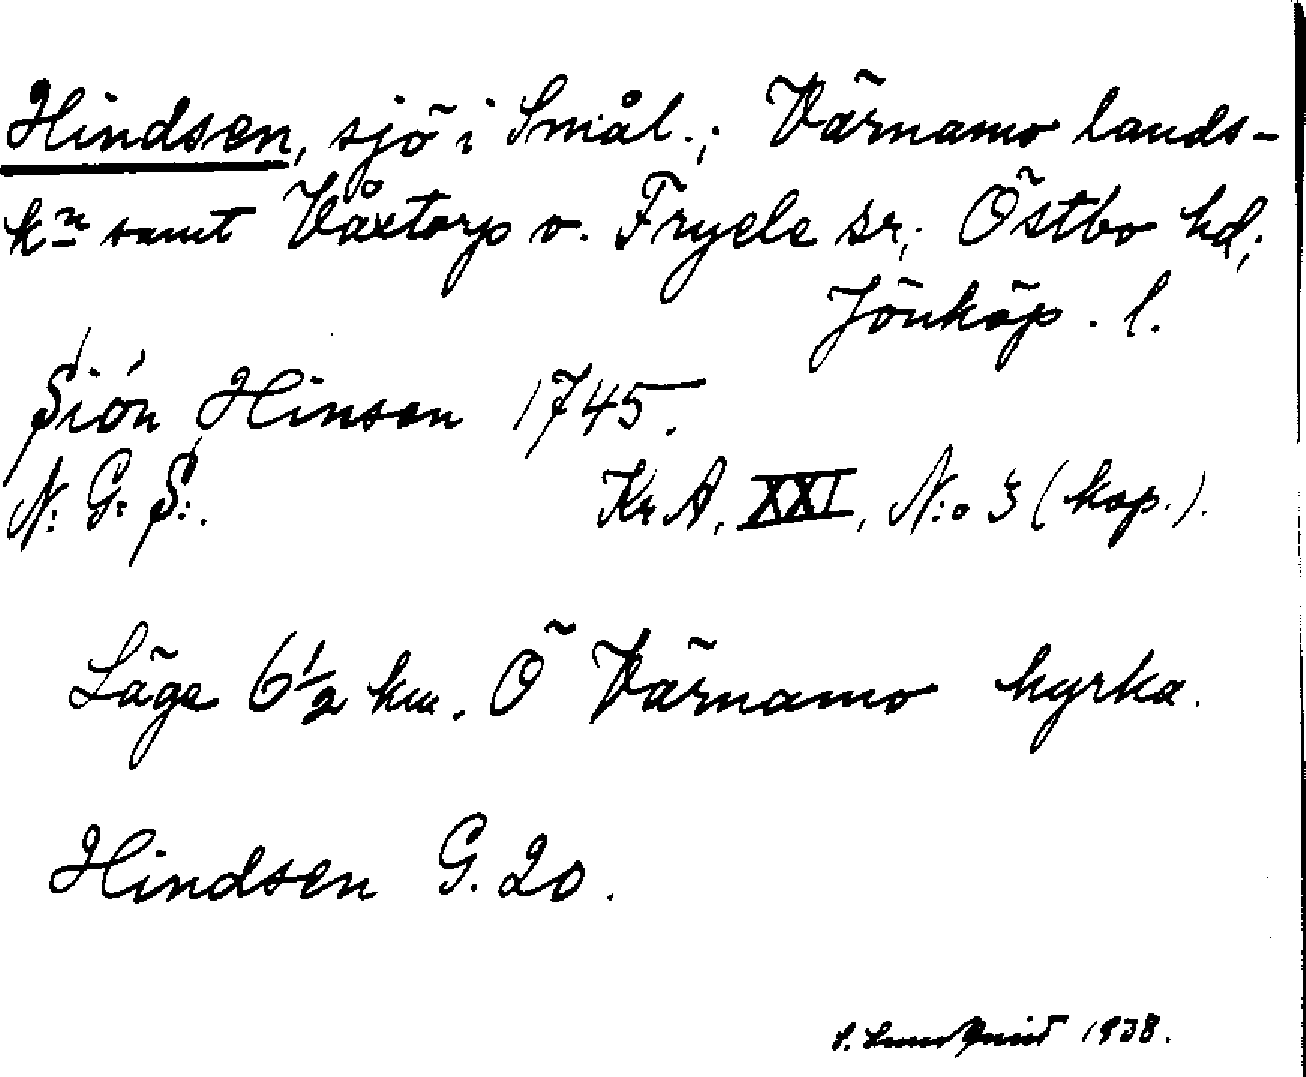 Hindsen, sjö i Smål.; Värnamo lands-
kn samt Våxtorp o. Fryele sr; Östbo hd;
Jönköp. l.
Siön Hinsen 1745.
N: G: S:.
Kr A, XXI, N:o 3 (kop.).
Läge 6 1/2 km. Ö Värnamo kyrka.
Hindsen G. 20.
S. Lundquist 1938.